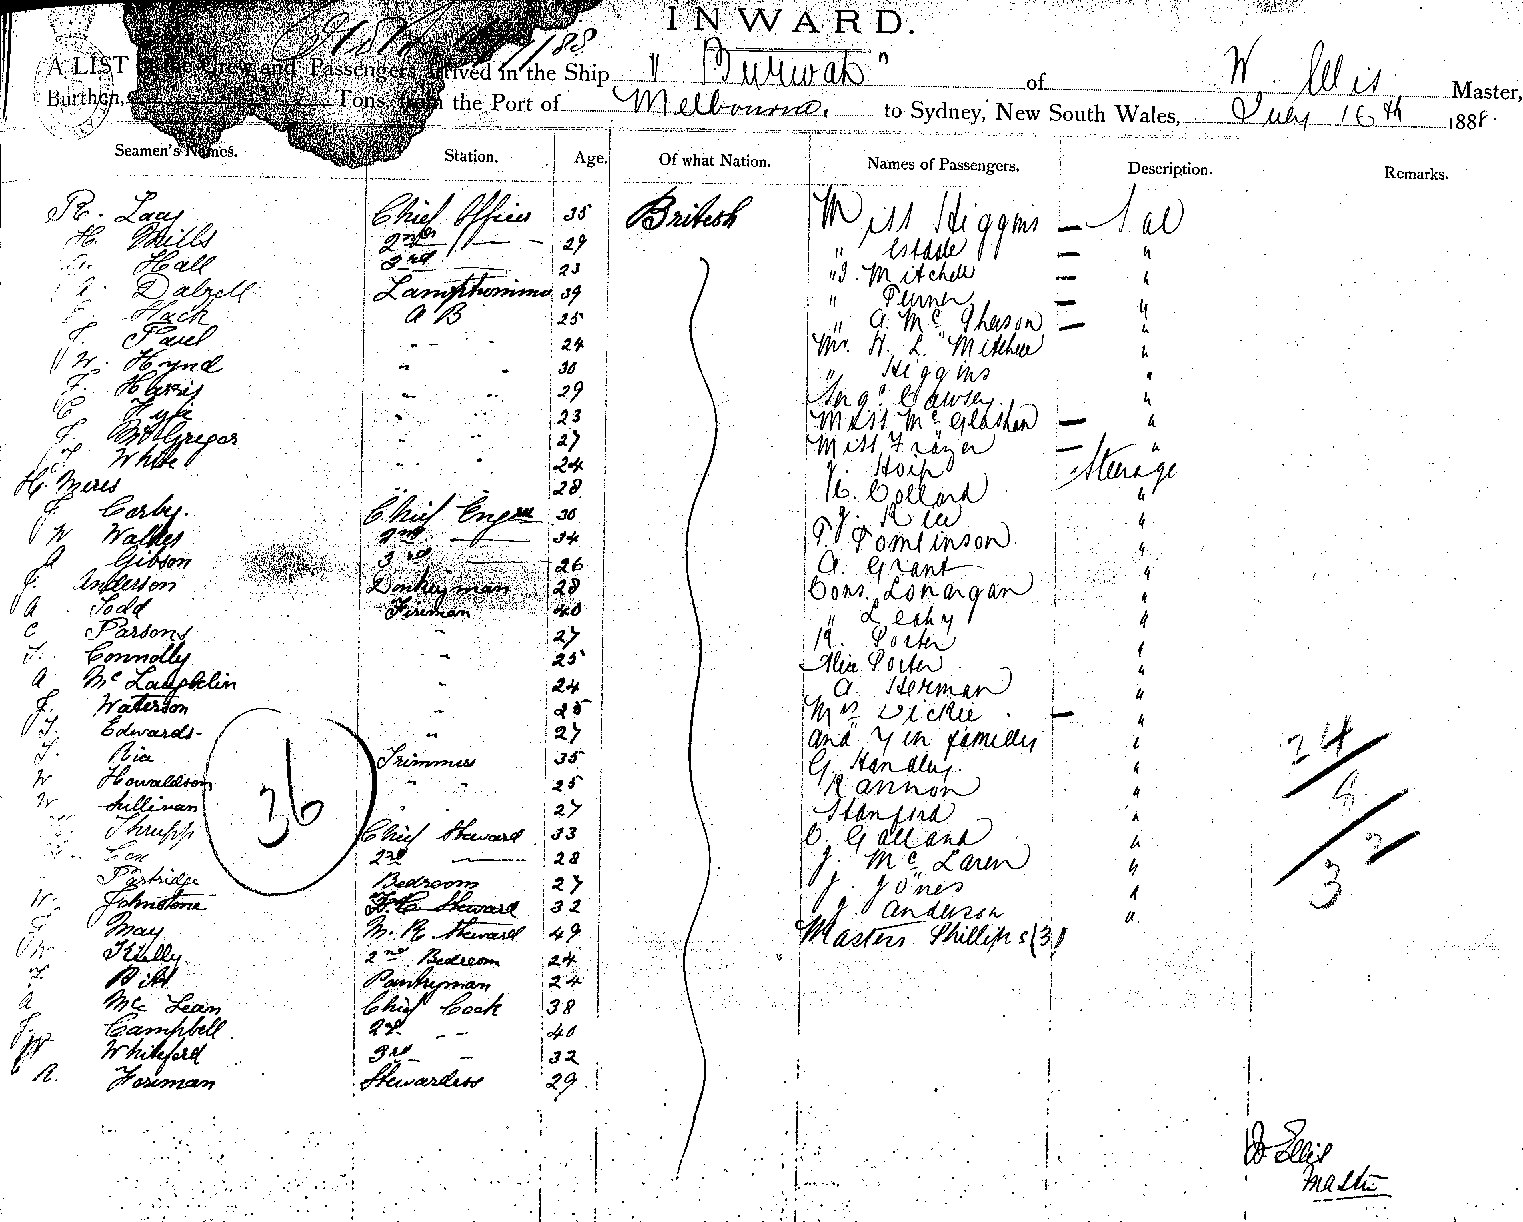 INWARD.
A LIST of the Crew and Passengers arrived in the Ship "Burwah" of W. Ellis Master,
Burthen, Tons, from the Port of Melbourne. to Sydney, New South Wales, July 16th 1888.
Seamen's Names. Station. Age. Of what Nation. Names of Passengers. Description. Remarks.
R. Lacy Chief Officer 35 British Miss Higgins — Sal
H. Mills 2nd — 29 " Estade — "
Hall 3rd — 23 " J. Mitchell — "
A. Dalzell Lamptrimmer 39 " Turner — "
Hack A B 25 " A. McPherson — "
T. Paul " " 24 Mr. H. L. Mitchell "
W. Hynd " " 30 " Higgins "
F. Harris " " 29 Cawsey "
C Kyle " " 23 Miss McGlashan — "
McGregor " " 27 Miss Frazer — "
White " " 24 J. Steerage
H. Meres " " 28 K. Collard "
J Corby. Chief Engeer 36 J. Rice "
W Walker 2nd — 34 T Tomlinson "
A Gibson 3rd — 26 A. Grant "
J. Anderson Donkeyman 28 Cons. Lonargan "
A Todd Fireman 40 " Leahy "
C Parsons " 27 R. Porter "
T. Connolly " 25 Alex Porter "
A McLaughlin " 24 A. Herman "
J. Waterson " 25 Mrs Dickie — "
T. Edwards " 27 and 7 in families "
T. Rice Trimmers 35 G. Handley "
W Howaldson " " 25 Kannon "
W Sullivan " " 27 Stanford "
Thrupp Chief Steward 33 C. Galland "
Cox 2nd — 28 J. McLaren "
Partridge Bedroom 27 J. Jones "
W. Johnstone F.C. Steward 32 J. Anderson "
May M. R. Steward 49 Masters Phillips (3)
Kelly 2nd Bedroom 24
Pantryman 24
A McLean Chief Cook 38
Campbell 2nd " 40
Whiteford 3rd " 32
R. Foreman Stewardess 29
36
24/8/32
W Ellis
Master